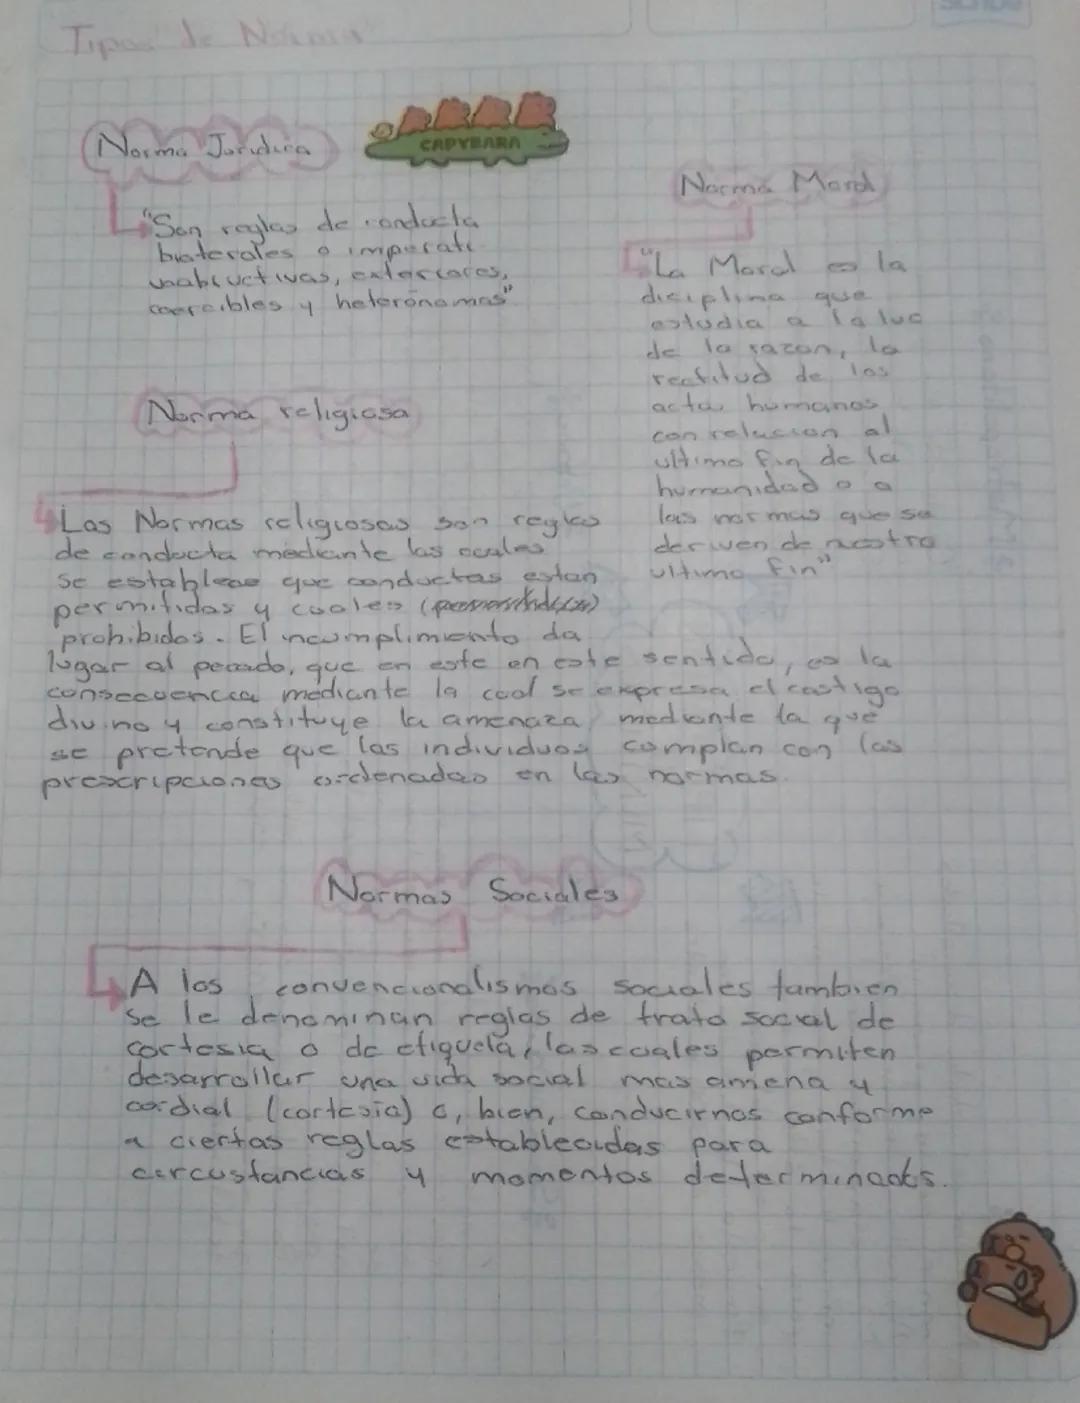 Tipos de Norma
Norma Juridica
CAPYBARA
"Son reglas de conducta
biaterales o imperati
vaabiuctivas, exteriores,
coercibles y heterónomas"
Norma Moral
"La Moral es la
disciplina que
estudia a la luc
de la razon, la
rectitud de los
actos humanos
con relacion al
ultimo fin de la
humanidad o a
las normas que se
deriven de nuestro
ultimo fin"
Norma religiosa
Las Normas religiosas son reglas
de conducta mediante las cuales
se establece que conductas estan
permitidas y cuales
prohibidos. El incumplimiento da
lugar al pecado, que en este en este sentido, es la
consecuencia mediante la cual se expresa el castigo
divino y constituye la amenaza mediante la que
se pretende que las individuos cumplan con las
prescripciones ordenadas en las normas.
Normas Sociales
A los convencionalismos sociales tambien
se le denominan reglas de trato social de
cortesia o de etiqueta, las cuales permiten
desarrollar una vida social mas amena y
cordial (cortesia) o, bien, conducirnos conforme
a ciertas reglas establecidas para
circustancias y momentos determinados.